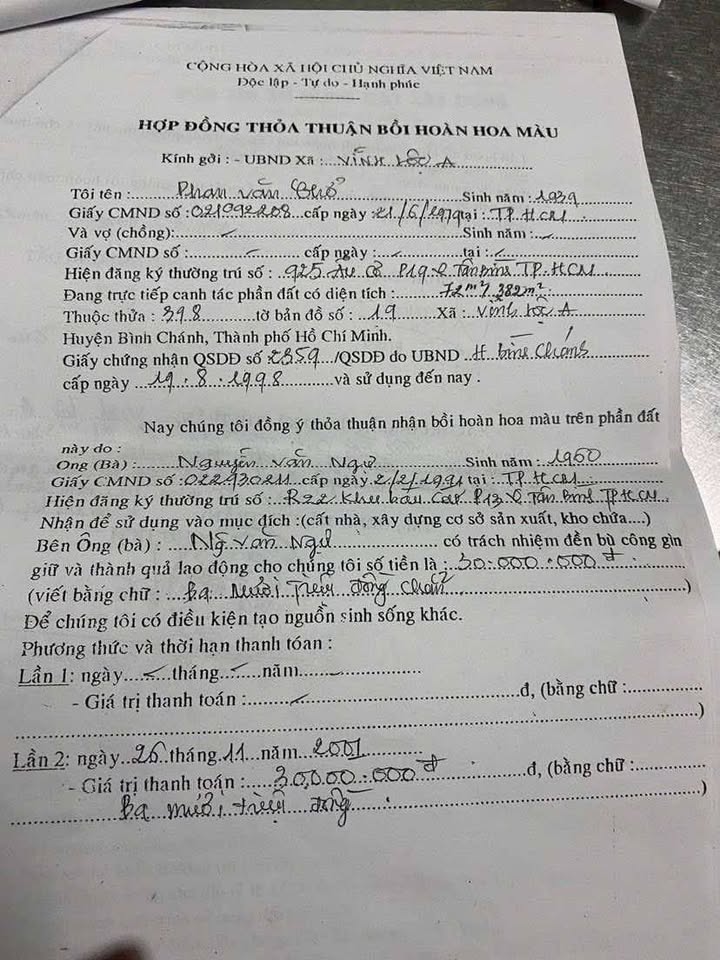 CỘNG HÒA XÃ HỘI CHỦ NGHĨA VIỆT NAM
Độc lập - Tự do - Hạnh phúc
HỢP ĐỒNG THỎA THUẬN BỒI HOÀN HOA MÀU
Kính gởi : - UBND Xã : VĨNH LỘC A
Tôi tên : Phan Văn Sinh năm : 1939
Giấy CMND số : 021992208 cấp ngày : 21/6/1979 tại : TP.HCM
Và vợ (chồng): Sinh năm :
Giấy CMND số : cấp ngày : tại :
Hiện đăng ký thường trú số : 925 Âu Cơ P19 Q Tân Bình TP.HCM
Đang trực tiếp canh tác phần đất có diện tích : 72m²/382m²
Thuộc thửa : 398 tờ bản đồ số : 19 Xã : Vĩnh Lộc A
Huyện Bình Chánh, Thành phố Hồ Chí Minh.
Giấy chứng nhận QSDĐ số 2359 /QSDĐ do UBND H Bình Chánh
cấp ngày 19.8.1998 và sử dụng đến nay .
Nay chúng tôi đồng ý thỏa thuận nhận bồi hoàn hoa màu trên phần đất
này do :
Ong (Bà) : Nguyễn Văn Ngự Sinh năm : 1960
Giấy CMND số : 022930211 cấp ngày : 2/2/1991 tại : TP.HCM
Hiện đăng ký thường trú số : R22 Khu Bàu Cát P13 Q Tân Bình TP.HCM
Nhận để sử dụng vào mục đích :(cất nhà, xây dựng cơ sở sản xuất, kho chứa....)
Bên Ông (bà) : Ng Văn Ngự có trách nhiệm đền bù công gìn
giữ và thành quả lao động cho chúng tôi số tiền là : 30.000.000đ
(viết bằng chữ : Ba Mươi Triệu đồng chẵn )
Để chúng tôi có điều kiện tạo nguồn sinh sống khác.
Phương thức và thời hạn thanh tóan :
Lần 1: ngày tháng năm
- Giá trị thanh toán : đ, (bằng chữ :
)
Lần 2: ngày 26 tháng 11 năm 2001
- Giá trị thanh toán : 30.000.000đ đ, (bằng chữ :
Ba mươi triệu đồng )